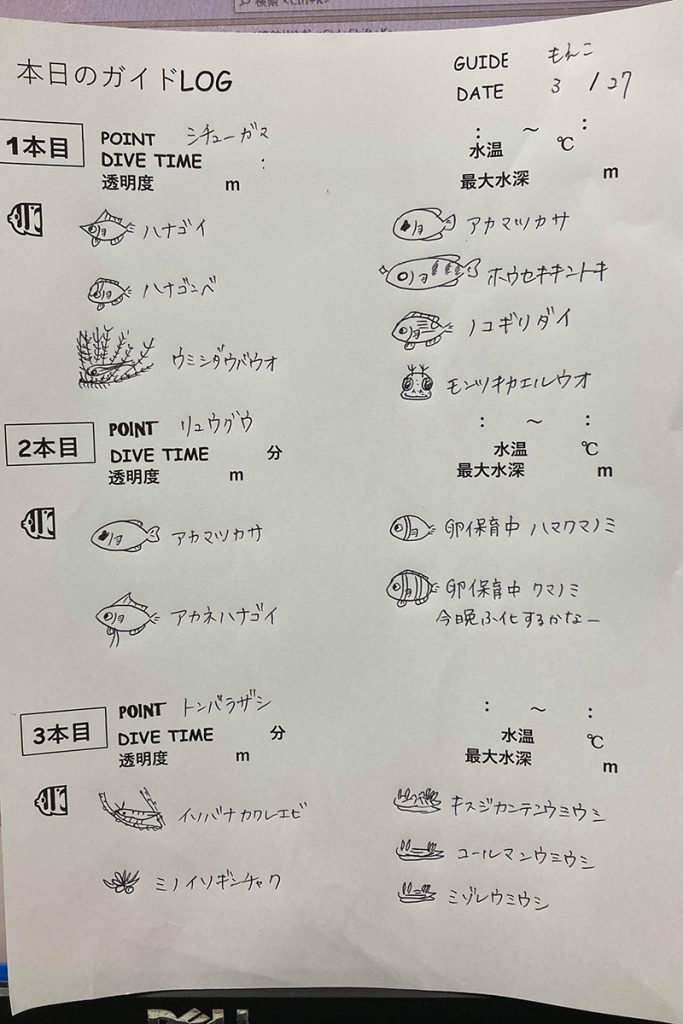 検索 <Ctrl+K>
本日のガイドLOG
GUIDE もんこ
DATE 3 / 27
1本目
POINT シチューガマ
: ～ :
DIVE TIME :
水温 ℃
透明度 m
最大水深 m
ハナゴイ
アカマツカサ
ハナゴンベ
ホウセキキントキ
ノコギリダイ
ウミシダウバウオ
モンツキカエルウオ
2本目
POINT リュウグウ
: ～ :
DIVE TIME 分
水温 ℃
透明度 m
最大水深 m
アカマツカサ
卵保育中 ハマクマノミ
アカネハナゴイ
卵保育中 クマノミ
今晩ふ化するかなー
3本目
POINT トンバラザシ
: ～ :
DIVE TIME 分
水温 ℃
透明度 m
最大水深 m
イソバナカクレエビ
キスジカンテンウミウシ
コールマンウミウシ
ミノイソギンチャク
ミゾレウミウシ
DELL